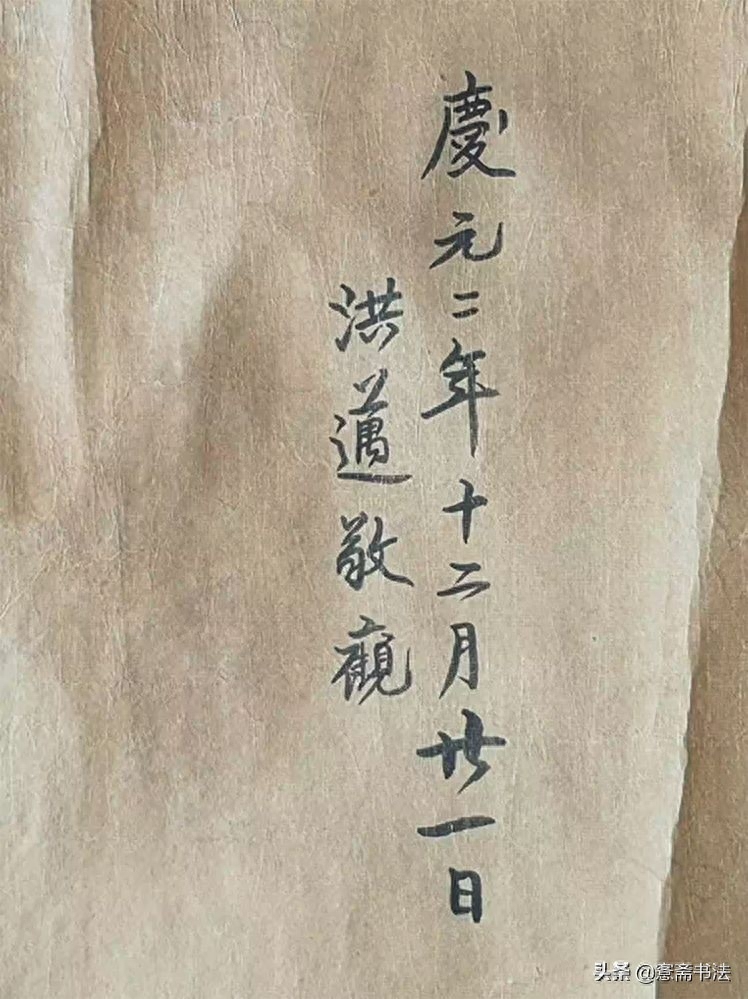 慶元二年十二月廿一日
洪邁敬觀
头条 @窻斋书法